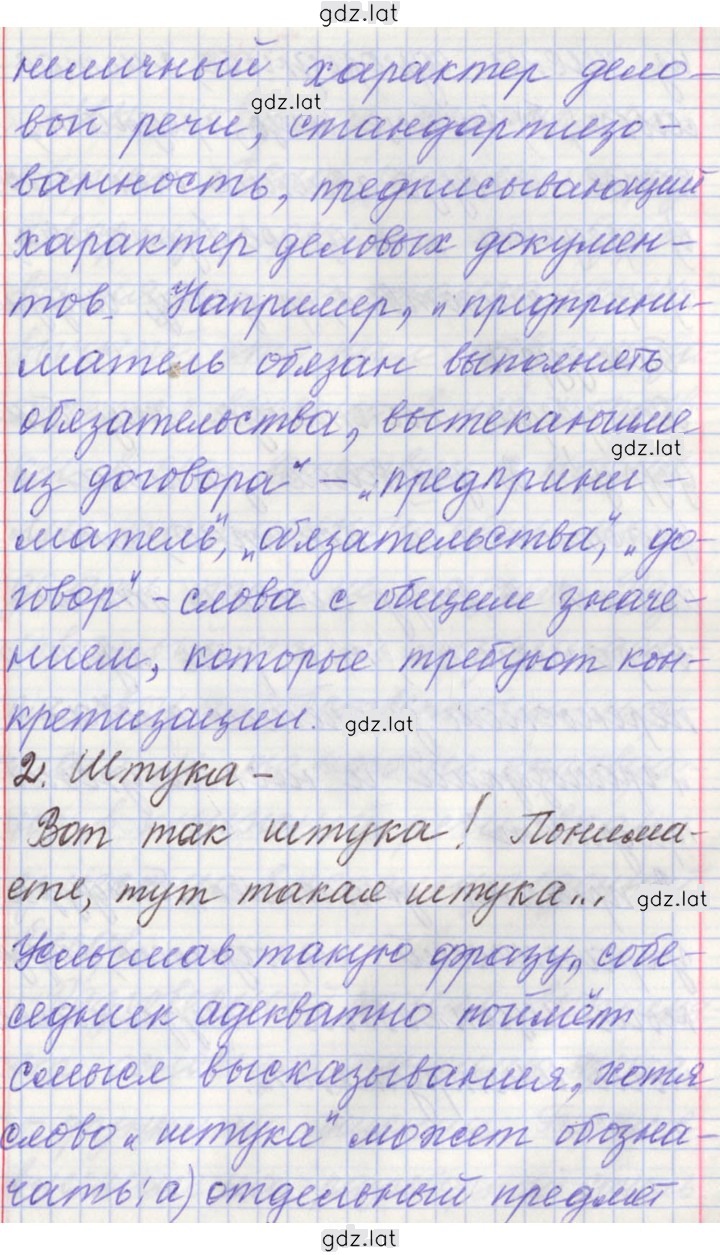 gdz.lat
неличный характер дело-
gdz.lat
вой речи, стандартизо-
ванность, предписывающий
характер деловых докумен-
тов. Например, „предприни-
матель обязан выполнять
обязательства, вытекающие
gdz.lat
из договора“ – „предприни-
матель“, „обязательства“, „до-
говор“ – слова с общим значе-
нием, которые требуют кон-
кретизации.
gdz.lat
2. Штука –
Вот так штука! Понима-
ете, тут такая штука...
gdz.lat
Услышав такую фразу, собе-
седник адекватно поймёт
смысл высказывания, хотя
слово „штука“ может обозна-
чать: а) отдельный предмет
gdz.lat